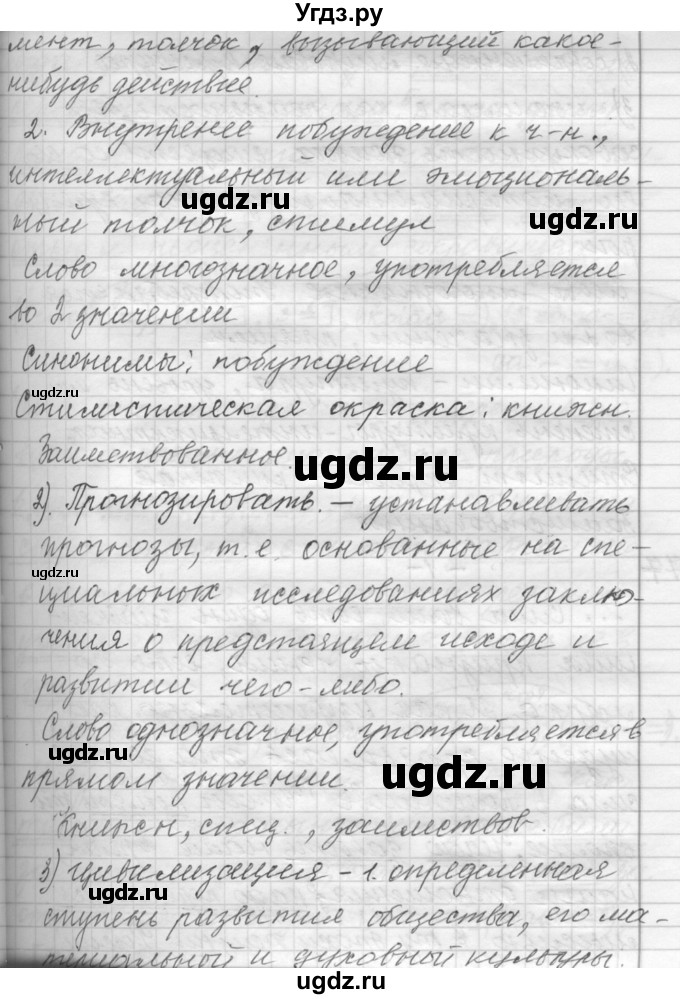 Угдз.ру
мент, толчок, вызывающий какое-
нибудь действие.
2. Внутренее побуждение к ч-н.,
интеллектуальный или эмоциональ-
ugdz.ru
ugdz.ru
ный толчок, стимул
Слово многозначное, употребляется
во 2 значении
Синонимы: побуждение
ugdz.ru
Стилистическая окраска: книжн.
ugdz.ru
Заимствованное.
2). Прогнозировать. – устанавливать
прогнозы, т.е. основанные на спе-
циальных исследованиях заклю-
ugdz.ru
чения о предстаящем исходе и
развитии чего-либо.
Слово однозначное, употребляется в
ugdz.ru
ugdz.ru
прямом значении.
Книжн, спец., заимствов.
3) Цивилизация – 1. определенная
ступень развития общества, его ма-
ugdz.ru
териальной и духовной культуры.
ugdz.ru